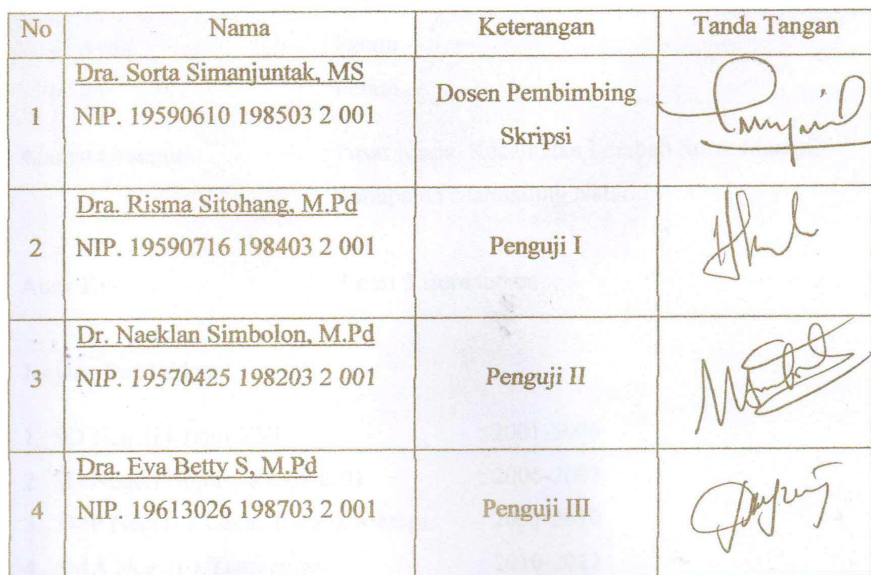 No Nama Keterangan Tanda Tangan
Dra. Sorta Simanjuntak, MS
1 NIP. 19590610 198503 2 001
Dosen Pembimbing
Skripsi
Dra. Risma Sitohang, M.Pd
2 NIP. 19590716 198403 2 001 Penguji I
Dr. Naeklan Simbolon, M.Pd
3 NIP. 19570425 198203 2 001 Penguji II
Dra. Eva Betty S, M.Pd
4 NIP. 19613026 198703 2 001 Penguji III